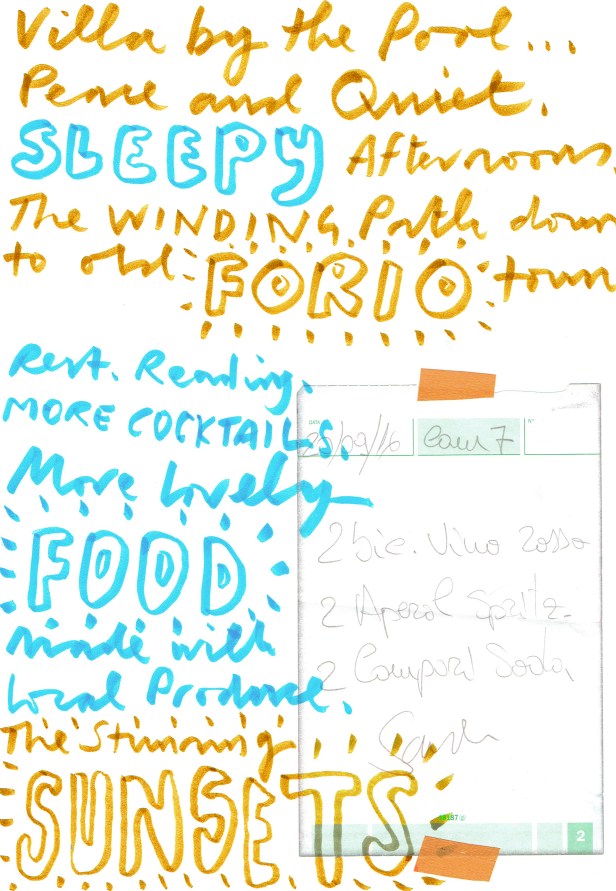 Villa by the Pool...
Peace and Quiet.
SLEEPY Afternoons,
The WINDING Path down
to old FORIO town
Rest. Reading.
MORE COCKTAILS.
More Lovely
FOOD
made with
Local Produce.
The Stunning
SUNSETS
DATA
25/09/16 Cam 7
N°
2 bic. Vino Rosso
2 Aperol Spritz
2 Campari Soda
2